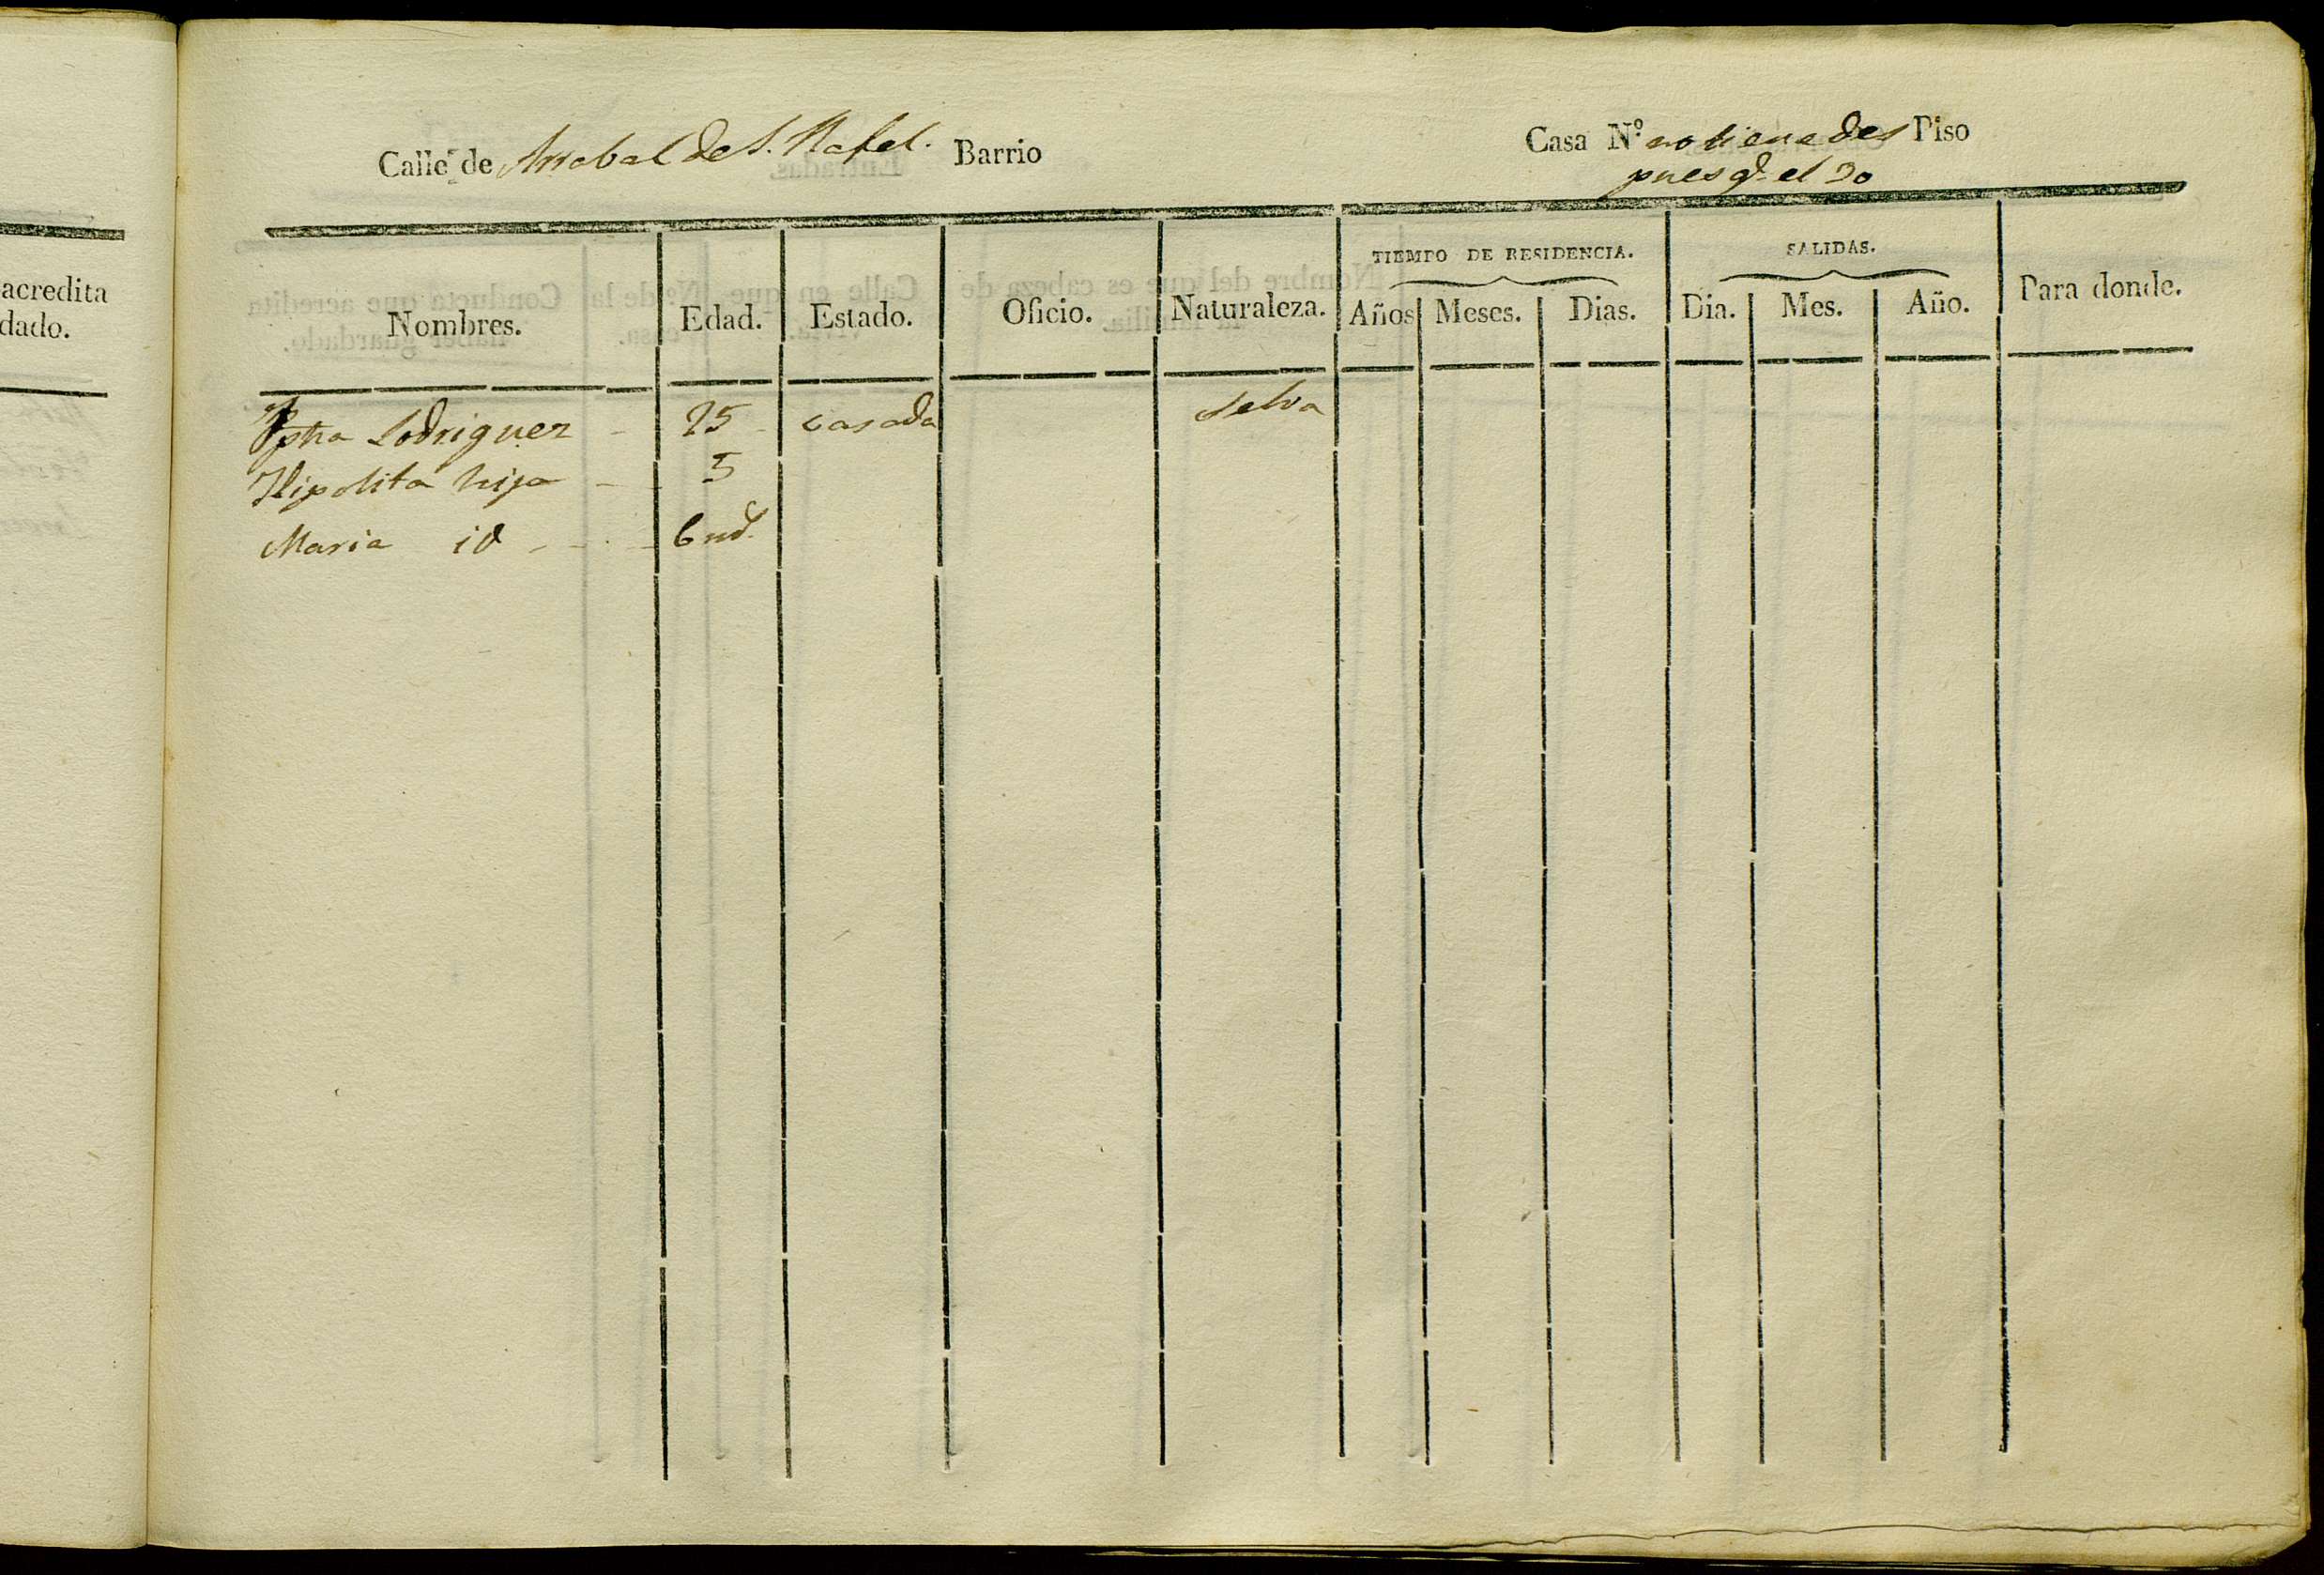 acredita
dado.
Calle de Arrabal de S. Rafel. Barrio
Casa N.º no tiene des Piso
pues q.e el 30
TIEMPO DE RESIDENCIA.
SALIDAS.
Nombres. Edad. Estado. Oficio. Naturaleza. Años Meses. Dias. Dia. Mes. Año. Para donde.
Rodriguez - 25 - casada Selva
Hipolita hija - 5
Maria id - - - 6